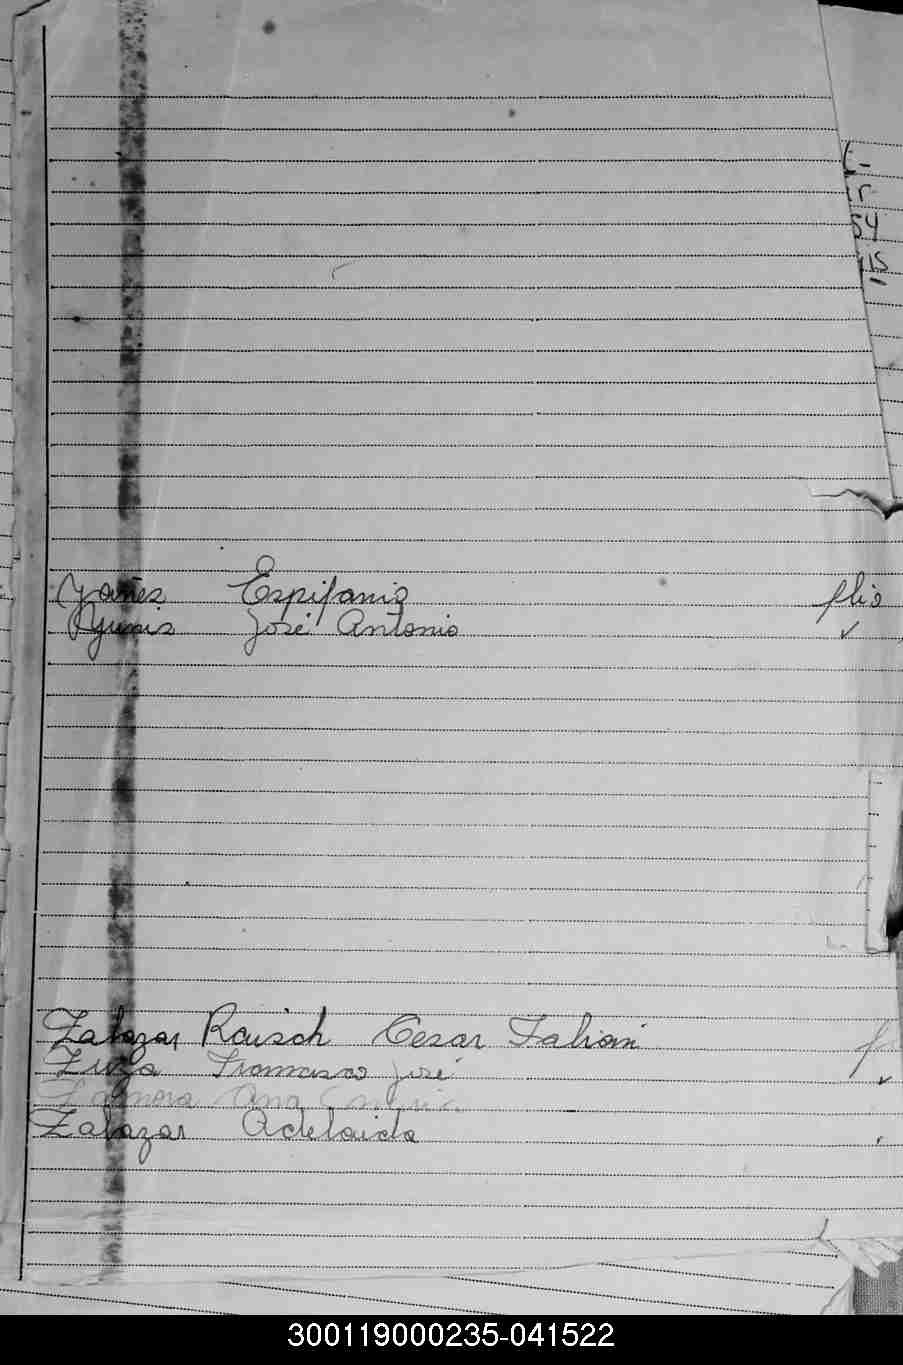 54
Yanes Epifanio flio
Yunis José Antonio ✓
Zalazar Rausch Cesar Fabian
Zuza Francisco José ✓
Zamora Ana
Zalazar Adelaida
300119000235-041522